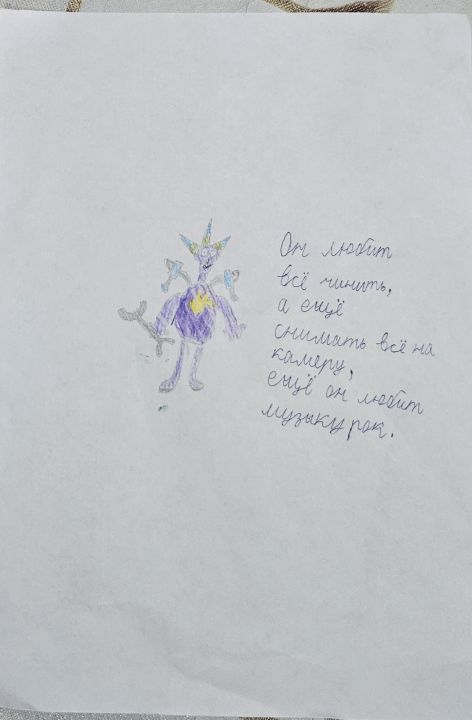 Он любит
всё чинить,
а ещё
снимать всё на
камеру,
ещё он любит
музыку рок.